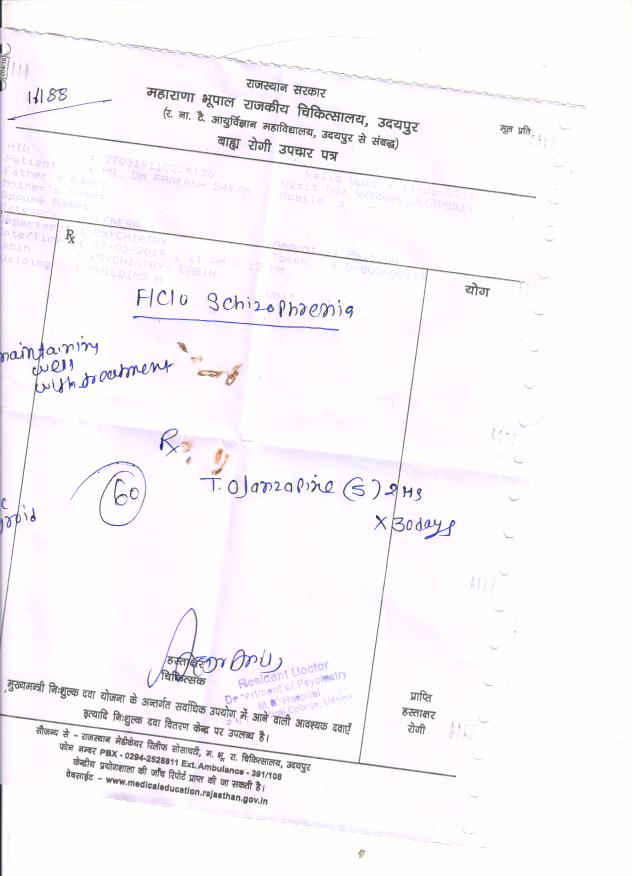 11188
राजस्थान सरकार
महाराणा भूपाल राजकीय चिकित्सालय, उदयपुर
(र. ना. टै. आयुर्विज्ञान महाविद्यालय, उदयपुर से संबद्ध)
बाह्य रोगी उपचार पत्र
मूल प्रति
HID : 270519110224156
Patient : MR. OM PRAKASH 54Y/M
Father's Name:
Mother's Name:
Spouse Name:
Category : GENERAL
Department : PSYCHIATRY
Date/Time : 27-05-2019 , 11 AM - 12 PM
Cabin : PSYCHIATRY- CABIN
Building : BUILDING A
Valid Upto : 11-06-2019
Visit No: V/MBGH/19/308819
Mobile :
Amount : Rs.
Token :
Unit
Rx
योग
F/C/O Schizophrenia
maintaining
well
with treatment
Rx
60
T. Olanzapine (5) 2 HS
X 30 days
हस्ताक्षर
चिकित्सक
Resident Doctor
Department of Psychiatry
M. B. Hospital
Medical College, Udaipur
मुख्यमन्त्री निःशुल्क दवा योजना के अन्तर्गत सर्वाधिक उपयोग में आने वाली आवश्यक दवाएँ
इत्यादि निःशुल्क दवा वितरण केन्द्र पर उपलब्ध है।
प्राप्ति
हस्ताक्षर
रोगी
सौजन्य से - राजस्थान मेडीकेयर रिलीफ सोसायटी, म. भू. रा. चिकित्सालय, उदयपुर
फोन नम्बर PBX - 0294-2528811 Ext. Ambulance - 391/108
केन्द्रीय प्रयोगशाला की जाँच रिपोर्ट प्राप्त की जा सकती है।
वेबसाईट - www.medicaleducation.rajasthan.gov.in